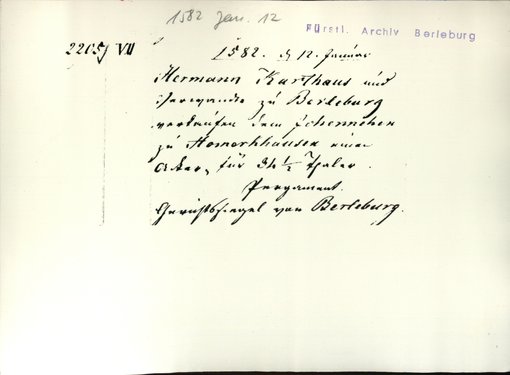 1582 Jan. 12
Fürstl. Archiv Berleburg
2205/VII
1582. d 12. Januar
Hermann Karthaus und
Verwandte zu Berleburg
verkaufen dem Schennchen
zu Homorkhausen einen
Acker, für 34 1/2 Thaler.
Pergament.
Gerichtssiegel von Berleburg.